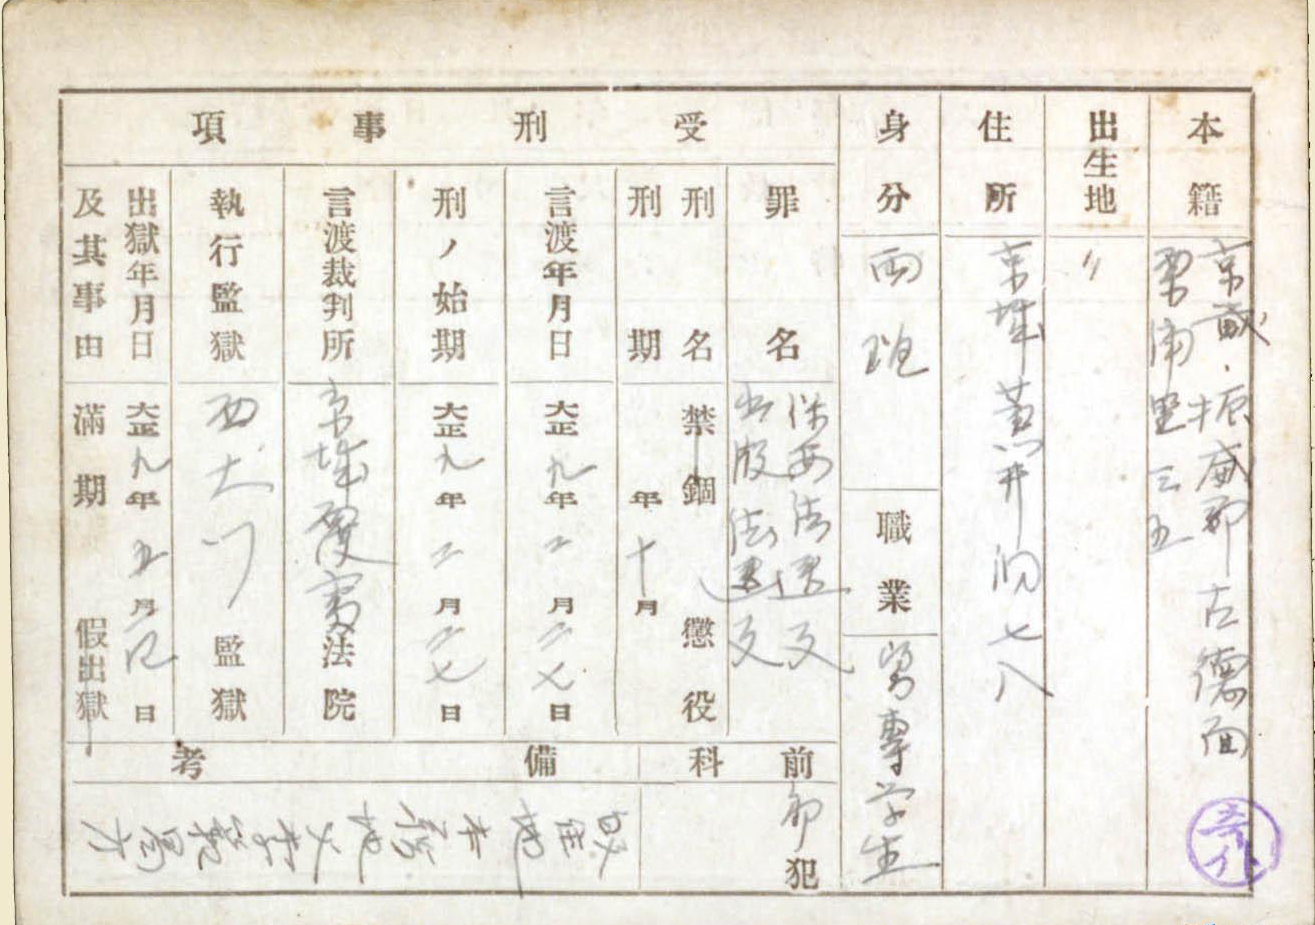 本籍
京畿・振威郡古德面
栗浦里三五
出生地
〃
住所
京城黃金井洞七八
身分
両班
職業
醫專学生
受刑事項
罪名
保安法違反
出版法違反
刑名
禁錮 懲役
刑期
年十月
言渡年月日
大正九年二月二七日
刑ノ始期
大正九年二月二七日
言渡裁判所
京城覆審法院
執行監獄
西大門監獄
出獄年月日
及其事由
大正九年四月 日
滿期 假出獄
前科
初犯
備考
住所
本籍地